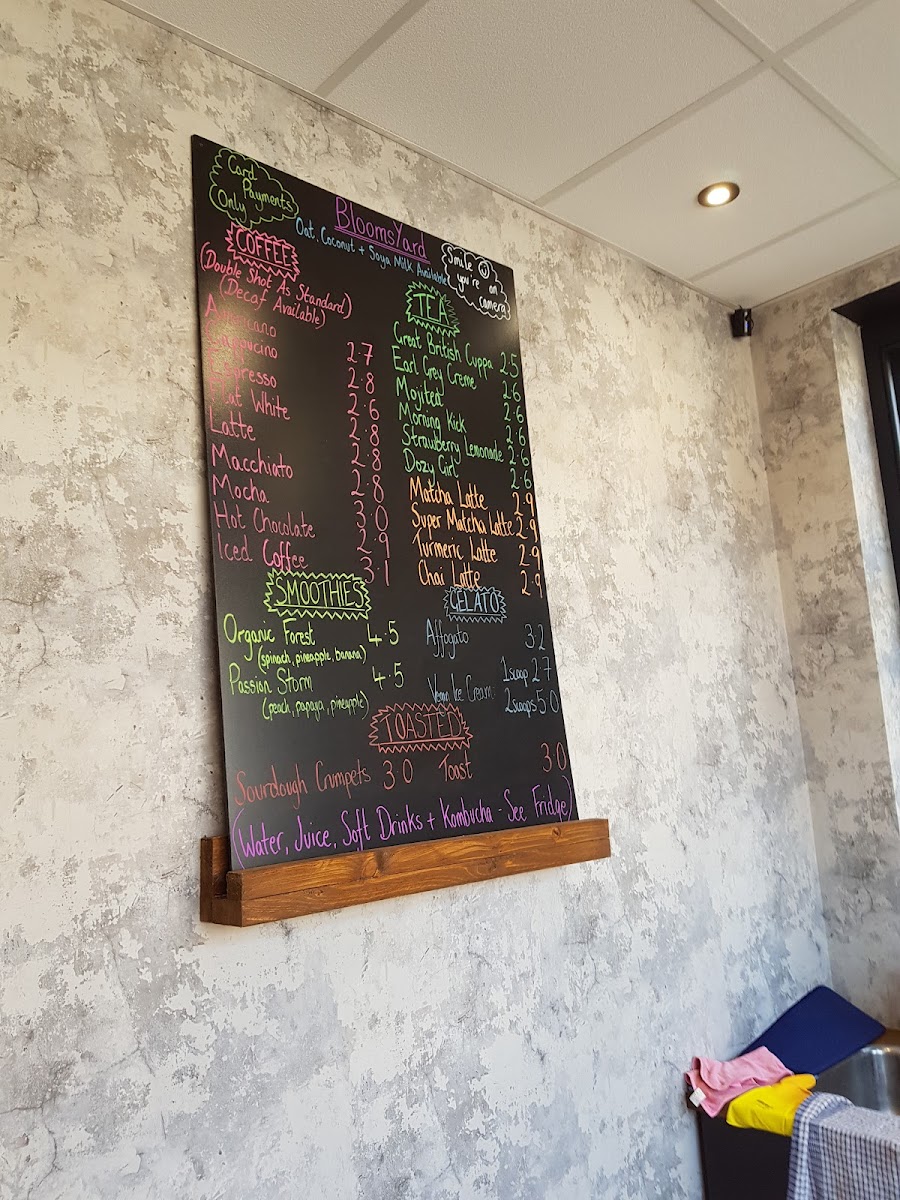 Card
Payments
Only
BloomsYard
Oat, Coconut + Soya Milk Available
Smile
you're on
camera
COFFEE
(Double Shot As Standard)
(Decaf Available)
Americano 2.7
Cappucino 2.8
Espresso 2.6
Flat White 2.8
Latte 2.8
Macchiato 2.8
Mocha 3.0
Hot Chocolate 2.9
Iced Coffee 3.1
TEA
Great British Cuppa 2.5
Earl Grey Creme 2.6
Mojitea 2.6
Morning Kick 2.6
Strawberry Lemonade 2.6
Dozy Girl 2.6
Matcha Latte 2.9
Super Matcha Latte 2.9
Turmeric Latte 2.9
Chai Latte 2.9
SMOOTHIES
Organic Forest 4.5
(spinach, pineapple, banana)
Passion Storm 4.5
(peach, papaya, pineapple)
GELATO
Affogato 3.2
Vegan Ice Cream: 1scoop 2.7
2scoops 5.0
TOASTED
Sourdough Crumpets 3.0 Toast 3.0
(Water, Juice, Soft Drinks + Kombucha - See Fridge)